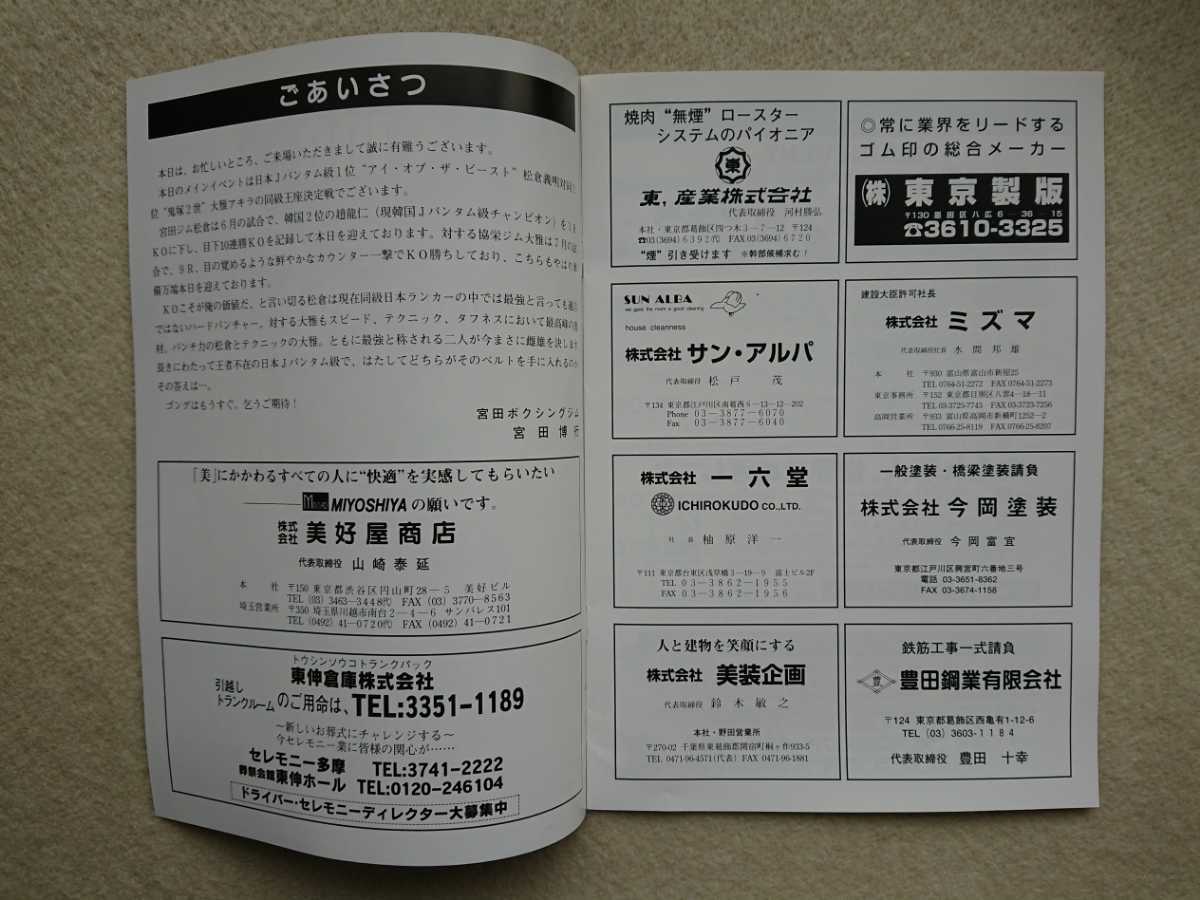 ごあいさつ
本日は、お忙しいところ、ご来場いただきまして誠に有難うございます。
本日のメインイベントは日本Jバンタム級1位“アイ・オブ・ザ・ビースト”松倉義明対同
位“鬼塚2世”大雅アキラの同級王座決定戦でございます。
宮田ジム松倉は6月の試合で、韓国2位の趙龍仁(現韓国Jバンタム級チャンピオン)を
KOに下し、目下10連勝KOを記録して本日を迎えております。対する協栄ジム大雅は7月の
合で、9R、目の覚めるような鮮やかなカウンター一撃でKO勝ちしており、こちらもやはり
備万端本日を迎えております。
KOこそが俺の価値だ、と言い切る松倉は現在同級日本ランカーの中では最強と言っても過
ではないハードパンチャー。対する大雅もスピード、テクニック、タフネスにおいて最高峰の
材。パンチ力の松倉とテクニックの大雅。ともに最強と称される二人が今まさに雌雄を決します
長きにわたって王者不在の日本Jバンタム級で、はたしてどちらがそのベルトを手に入れるのか
その答えは―。
ゴングはもうすぐ。乞うご期待!
宮田ボクシングジム
宮田博行
「美」にかかわるすべての人に“快適”を実感してもらいたい
MIYOSHIYAの願いです。
株式会社 美好屋商店
代表取締役 山崎泰延
本社 〒150 東京都渋谷区円山町28－5 美好ビル
TEL(03)3463－3448代) FAX(03)3770－8563
埼玉営業所 〒350 埼玉県川越市南台2－4－6 サンパレス101
TEL(0492)41－0720代) FAX(0492)41－0721
トウシンソウコトランクパック
東伸倉庫株式会社
引越し
トランクルームのご用命は、TEL:3351−1189
～新しいお葬式にチャレンジする～
今セレモニー業に皆様の関心が……
セレモニー多摩 TEL:3741−2222
葬祭会館 東伸ホール TEL:0120−246104
ドライバー・セレモニーディレクター大募集中
焼肉“無煙”ロースター
システムのパイオニア
東
東,産業株式会社
代表取締役 河村勝弘
本社・東京都葛飾区四つ木3－7－12 〒124
☎03(3694)6392代 FAX03(3694)6720
“煙”引き受けます ※幹部候補求む!
◎常に業界をリードする
ゴム印の総合メーカー
㈱ 東京製版
〒130 墨田区八広6－36－15
☎3610-3325
SUN ALBA
we gaze the room is good cleaning
house cleanness
株式会社 サン・アルバ
代表取締役 松戸 茂
〒134 東京都江戸川区南葛西6－13－12－202
Phone 03－3877－6070
Fax 03－3877－6040
建設大臣許可社長
株式会社 ミズマ
代表取締役社長 水間邦雄
本社 〒930 富山県富山市新屋25
TEL 0764-51-2272 FAX 0764-51-2273
東京事務所 〒152 東京都目黒区八雲4－18－11
TEL 03-3725-7743 FAX 03-3723-7256
高岡営業所 〒933 富山県高岡市新横町1252－2
TEL 0766-25-8119 FAX 0766-25-8207
株式会社 一六堂
ICHIROKUDO CO.,LTD.
社長 柚原洋一
〒111 東京都台東区浅草橋3－19－9 富士ビル2F
TEL 03－3862－1955
FAX 03－3862－1956
一般塗装・橋梁塗装請負
株式会社 今岡塗装
代表取締役 今岡富宜
東京都江戸川区興宮町六番地三号
電話 03-3651-8362
FAX 03-3674-1158
人と建物を笑顔にする
株式会社 美装企画
代表取締役 鈴木敏之
本社・野田営業所
〒270-02 千葉県東葛飾郡関宿町桐ヶ作933-5
TEL 0471-96-4571(代表) FAX 0471-96-1881
鉄筋工事一式請負
豊
豊田鋼業有限会社
〒124 東京都葛飾区西亀有1-12-6
TEL (03) 3603-1184
代表取締役 豊田 十幸